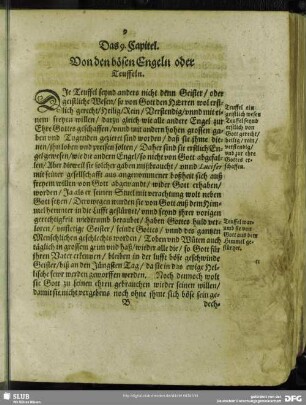 9
Das 9. Capitel.
Von den bösen Engeln oder
Teuffeln.
DIe Teuffel seynd anders nicht denn Geister / oder
geistliche Wesen / so von Gott den HErren wol erst-
lich gerecht / Heilig / Rein / Verstendig / vnnd mit
freyen willen / darzu gleich wie alle andere Engel zur
Ehre Gottes geschaffen / vnnd mit andern hohen grossen ga-
ben vnd Tugenden gezieret sind worden / daß sie ihme die-
nen / ihn loben vnd preisen solten / Daher sind sie erstlich En-
gel gewesen / wie die andere Engel / so nicht von Gott abgefal-
len / Aber dieweil sie solcher gaben mißbraucht / vnnd
freyen willen von Gott abgewand / wider Gott erhaben /
worden / Ja als er seinen Stuel mit verachtung wolt neben
Gott setzen / Derowegen wurden sie von Gott auß dem Him-
mel herunter in die Lufft gestürtzet / vnd seynd ihrer vorigen
gerechtigkeit widerumb beraubet / haben Gottes huld ver-
loren / vnselige Geister / feinde Gottes / vnnd des gantzen
Menschlichen geschlechts worden / Toben vnd Wüten auch
täglich in grossem grim vnd haß / wieder alle die / so Gott für
ihren Vater erkennen / bleiben in der lufft böse geschwinde
Geister / biß an den Jüngsten Tag / da sie in das ewige Hel-
lische fewr werden geworffen werden. Noch dennoch wolt
sie Gott zu seinen ehren gebrauchen wieder seinen willen /
damit sie nicht vergebens noch ohne ihme sich böse sein ge-
B
dech-
Teuffel ein
geistlich wesen
erstlich von
Gott gerecht /
heilig / rein /
verstendig /
vnd zur ehre
Gottes er-
schaffen.
Teuffel wer-
von
Gott auß dem
Himmel ge-
stürtzet.
SLUB
Wir führen Wissen.
gefördert von der
Deutschen Forschungsgemeinschaft
DFG